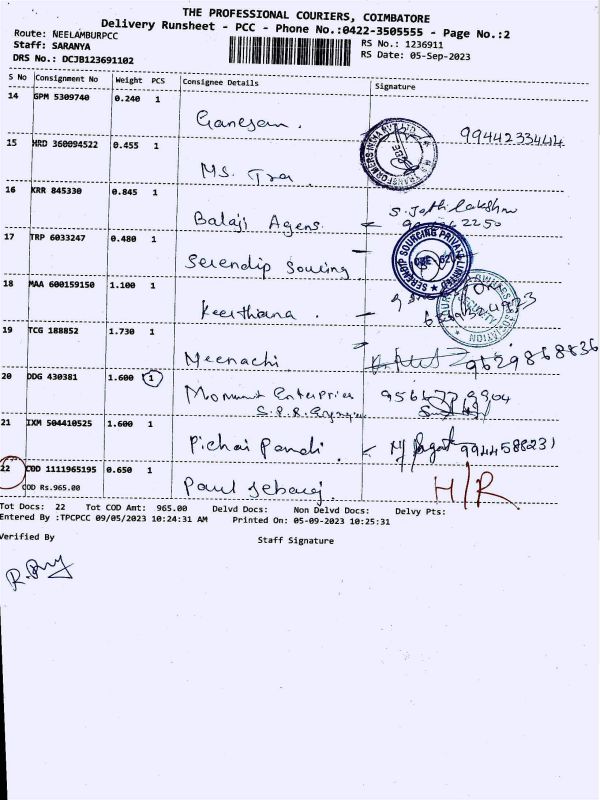 THE PROFESSIONAL COURIERS, COIMBATORE
Delivery Runsheet - PCC - Phone No.:0422-3505555 - Page No.:2
Route: NEELAMBURPCC
Staff: SARANYA
DRS No.: DCJB123691102
RS No.: 1236911
RS Date: 05-Sep-2023
S No Consignment No Weight PCS Consignee Details Signature
14 GPM 5309740 0.240 1
Ganesan. 9944233444
15 HRD 360094522 0.455 1
MS. Tra
16 KRR 845330 0.845 1
Balaji Agens
17 TRP 6033247 0.480 1
SERENDIP SOURCING PRIVATE LIMITED
Serendip Sourcing
18 MAA 600159150 1.100 1
Keerthana.
19 TCG 188852 1.730 1
Meenachi 9629868836
20 DDG 430381 1.600 1
21 IXM 504410525 1.600 1
Pichai Pandi.
22 COD 1111965195 0.650 1
COD Rs.965.00
Paul Jebaraj. H/R
Tot Docs: 22 Tot COD Amt: 965.00 Delvd Docs: Non Delvd Docs: Delvy Pts:
Entered By :TPCPCC 09/05/2023 10:24:31 AM Printed On: 05-09-2023 10:25:31
Verified By Staff Signature